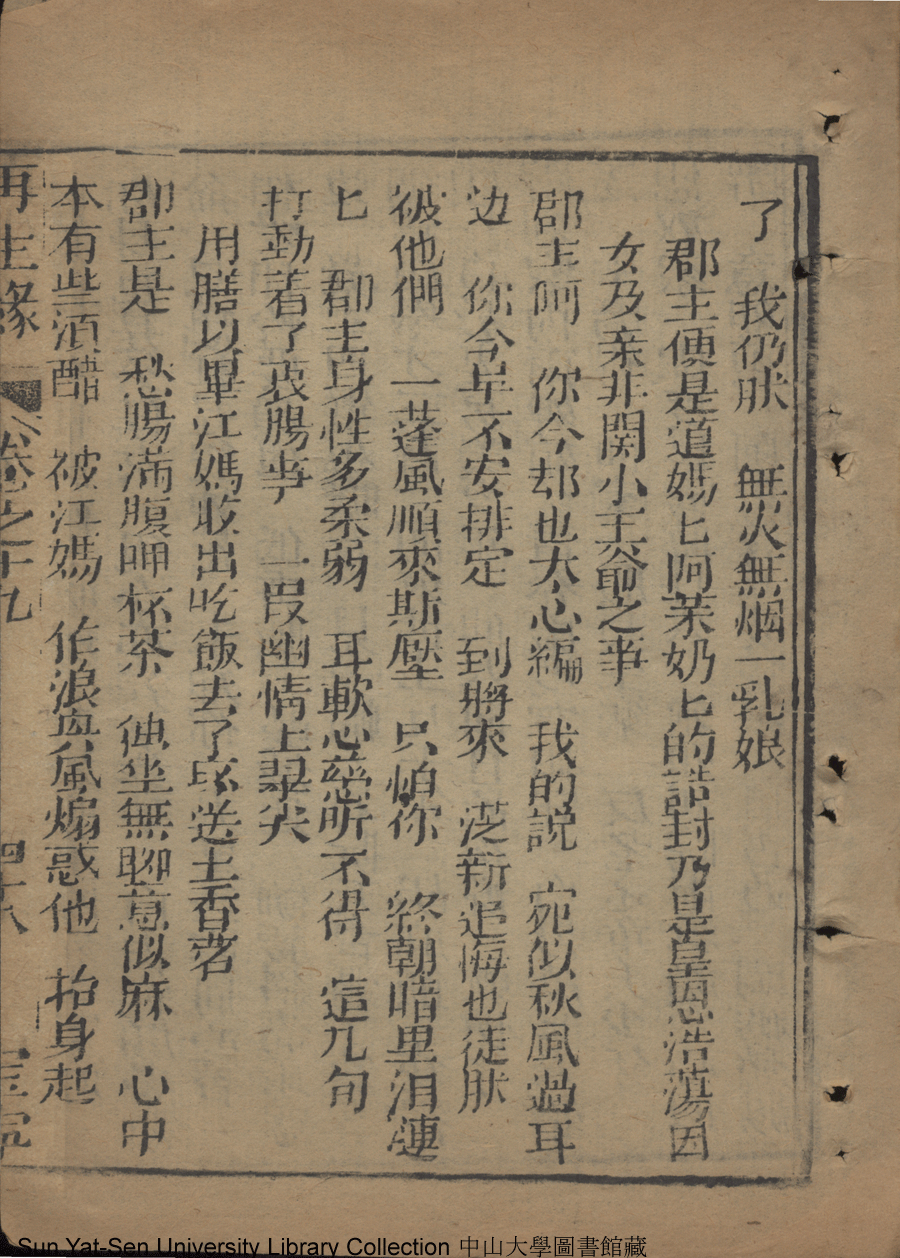 了　我仍肰　無火無烟一乳娘
郡主便是道媽匕阿苿奶匕的誥封乃是皇恩浩蕩因
女及亲非関小王爺之事
郡主阿　你今却也太心編　我的説　宛似秋風過耳
边　你今早不安排定　到將來　從新追悔也徒肰
彼他們　一蓬風順來斯壓　只怕你　終朝暗里泪漣
匕　郡主身性多柔弱　耳軟心慈听不得　這几句
打動着了哀腸事　一叚幽情上翠尖
用膳以畢江媽收出吃飯去了瑞送上香茗
郡主是　愁腸滿腹呷杯茶　伷坐無聊意似麻　心中
本有些酒醋　被江媽　作浪與風煽惑他　抬身起
再生緣　卷之十九　四十八
Sun Yat-Sen University Library Collection 中山大學圖書館藏